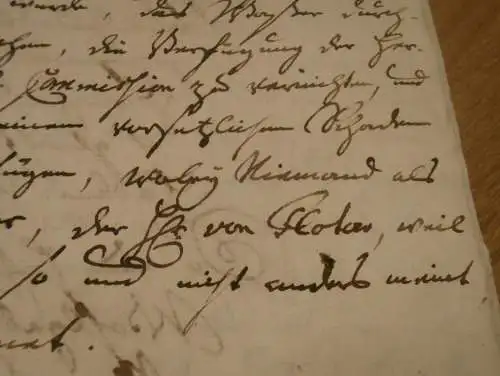 wurde, das Waßer durch-
chen, die Verfügung der Her-
Commission zu vernichten, und
einem vorsetzlichen Schaden
fügen, wobey Niemand als
der Hr von Flotow, weil
so und nicht anders meint